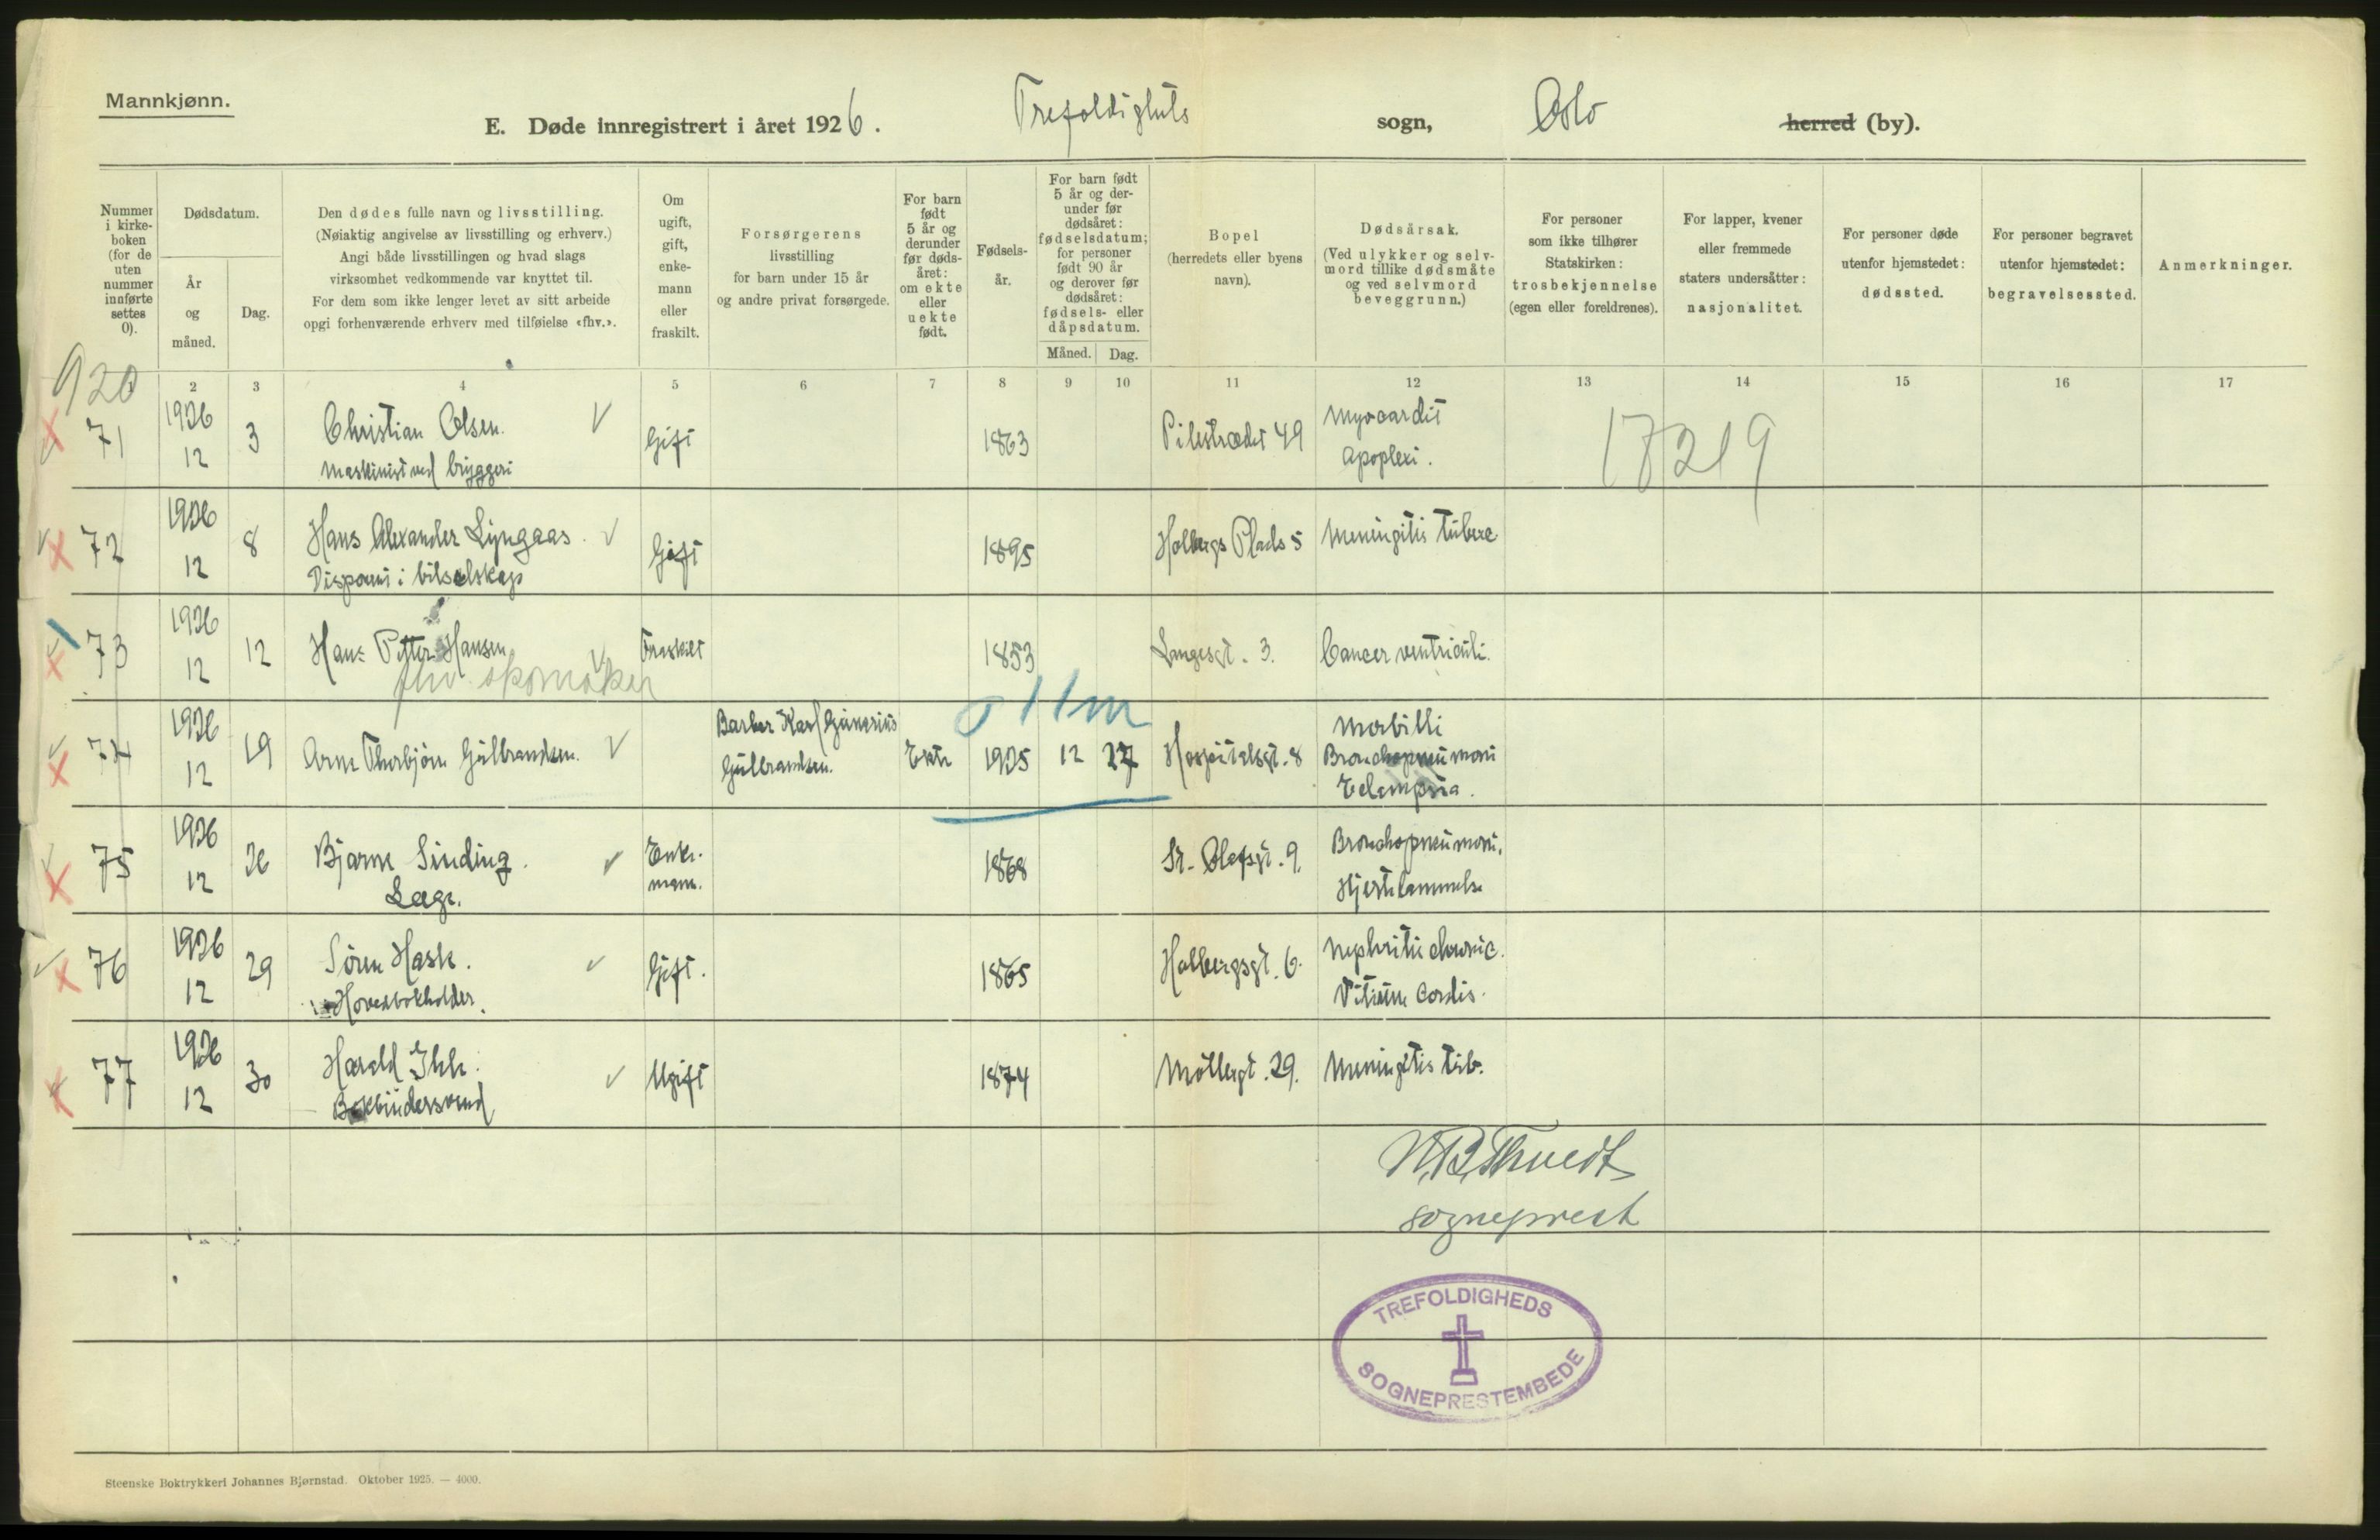 Mannkjønn.
E. Døde innregistrert i året 1926. Trefoldighets sogn, Oslo herred (by).
Nummer i kirkeboken (for de uten nummer innførte settes 0).
Dødsdatum.
År og måned.
Dag.
Den dødes fulle navn og livsstilling.
(Nøiaktig angivelse av livsstilling og erhverv.)
Angi både livsstillingen og hvad slags
virksomhet vedkommende var knyttet til.
For dem som ikke lenger levet av sitt arbeide
opgi forhenværende erhverv med tilføielse «fhv.».
Om ugift, gift, enkemann eller fraskilt.
Forsørgerens
livsstilling
for barn under 15 år
og andre privat forsørgede.
For barn født 5 år og derunder før dødsåret: om ekte eller uekte født.
Fødselsår.
For barn født 5 år og derunder før dødsåret: fødselsdatum; for personer født 90 år og derover før dødsåret: fødsels- eller dåpsdatum.
Måned. Dag.
Bopel
(herredets eller byens
navn).
Dødsårsak.
(Ved ulykker og selvmord tillike dødsmåte og ved selvmord beveggrunn.)
For personer
som ikke tilhører
Statskirken:
trosbekjennelse
(egen eller foreldrenes).
For lapper, kvener
eller fremmede
staters undersåtter:
nasjonalitet.
For personer døde
utenfor hjemstedet:
dødssted.
For personer begravet
utenfor hjemstedet:
begravelsessted.
Anmerkninger.
920
2 3 4 5 6 7 8 9 10 11 12 13 14 15 16 17
71 1926 12 3 Christian Olsen. Gift 1863 Pilestrædet 49 Myocardit
maskinist ved bryggeri Apoplexi. 17219
72 1926 12 8 Hans Alexander Lyngaas. Gift 1895 Holbergs Plads 5 Meningitis tuberc.
Disponent i bilselskap
73 1926 12 12 Hans Petter Hansen Fraskilt 1853 Langesgt. 3. Cancer ventriculi.
fhv. skomaker
0 11m
74 1926 12 19 Arne Thorbjörn Gulbrandsen. Barber Karl Gunerius Gulbrandsen. Ekte 1925 12 27 Hospitalsgt. 8 Morbilli
Bronchopneumoni
Eclampsia.
75 1926 12 26 Bjarne Sinding. Enkemann. 1868 St. Olafsgt. 9. Bronchopneumoni.
Læge. Hjertelammelse
76 1926 12 29 Sören Hasle. Gift. 1865 Holbergsgt. 6. Nephritis chronic.
Hovedbokholder. Vitium Cordis.
77 1926 12 30 Harald Ihle. Ugift 1874 Möllergt. 29. Meningitis tub.
Bokbindersvend
sogneprest
TREFOLDIGHEDS
SOGNEPRESTEMBEDE
Steenske Boktrykkeri Johannes Bjørnstad. Oktober 1925. — 4000.